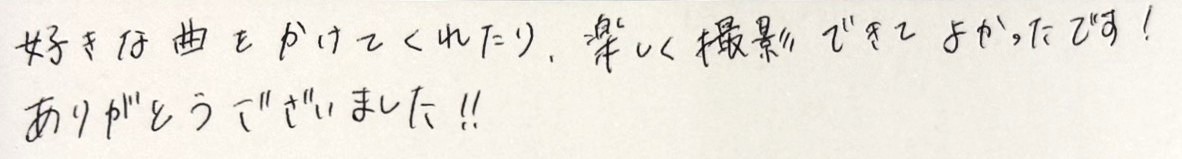 好きな曲をかけてくれたり、楽しく撮影できてよかったです!
ありがとうございました!!